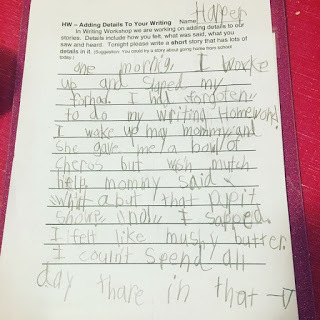 Harper
HW – Adding Details To Your Writing Name
In Writing Workshop we are working on adding details to our
stories. Details include how you felt, what was said, what you
saw and heard. Tonight please write a short story that has lots of
details in it. (Suggestion: You could try a story about going home from school
today.)
one morning I wooke
up and
I had forgoten
to do my writing Homework!
I wake up may mommy and
she gave me a bowl of
cherus but mutch
help mommy said
but that pupit
show? "no" I sapped.
I felt like mushy butter.
I count spend all
day thare in that